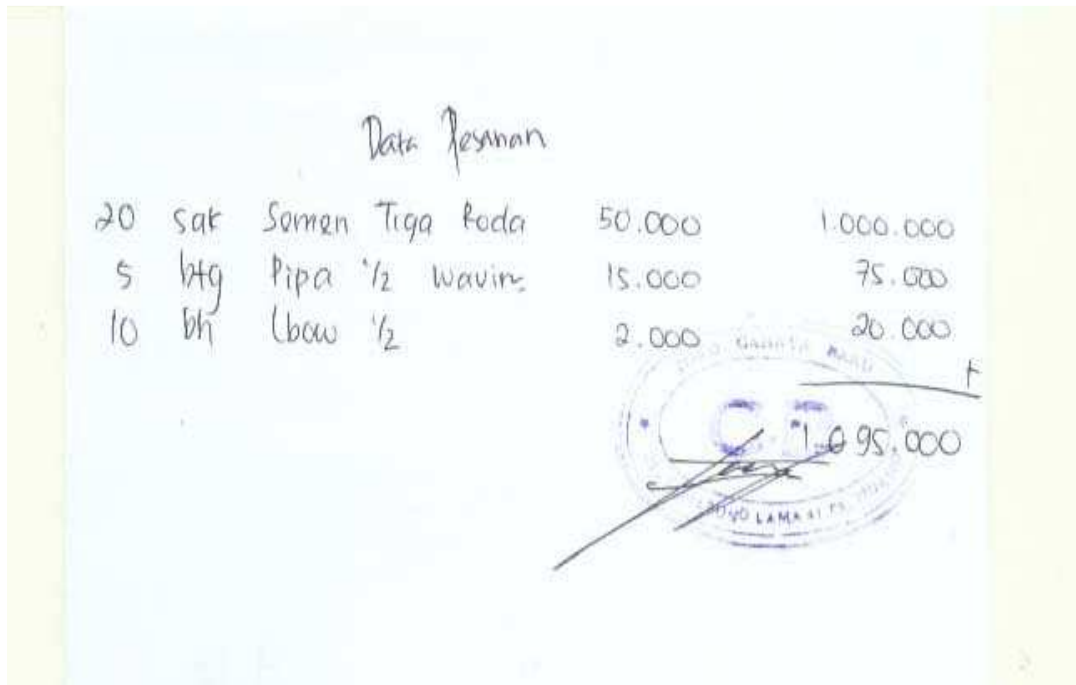 Data Pesanan
20 sak Semen Tiga Roda 50.000 1.000.000
5 btg Pipa 1/2 Wavin 15.000 75.000
10 bh Lbow 1/2 2.000 20.000
+
1.095.000